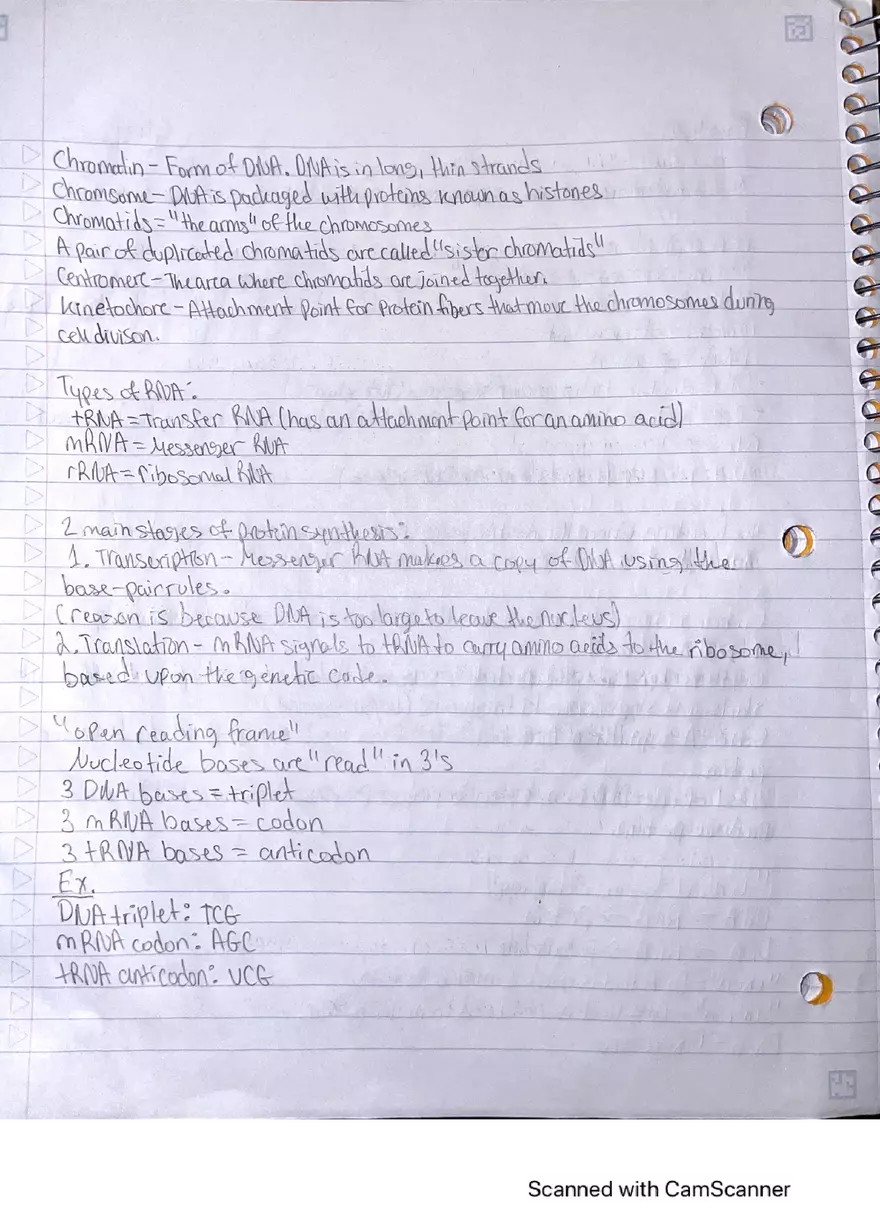 Chromatin - Form of DNA. DNA is in long, thin strands
Chromsome - DNA is packaged with proteins known as histones
Chromatids = "the arms" of the chromosomes
A pair of duplicated chromatids are called "sister chromatids"
Centromere - The area where chromatids are joined together.
Kinetochore - Attachment Point for Protein fibers that move the chromosomes during
cell divison.
Types of RNA:
tRNA = Transfer RNA (has an attachment point for an amino acid)
mRNA = Messenger RNA
rRNA = ribosomal RNA
2 main stages of protein synthesis:
1. Transcription - Messenger RNA makes a copy of DNA using the
base-pair rules.
(reason is because DNA is too large to leave the nucleus)
2. Translation - mRNA signals to tRNA to carry amino acids to the ribosome,
based upon the genetic code.
"open reading frame"
Nucleotide bases are "read" in 3's
3 DNA bases = triplet
3 mRNA bases = codon
3 tRNA bases = anticodon
Ex.
DNA triplet: TCG
mRNA codon: AGC
tRNA anticodon: UCG
Scanned with CamScanner